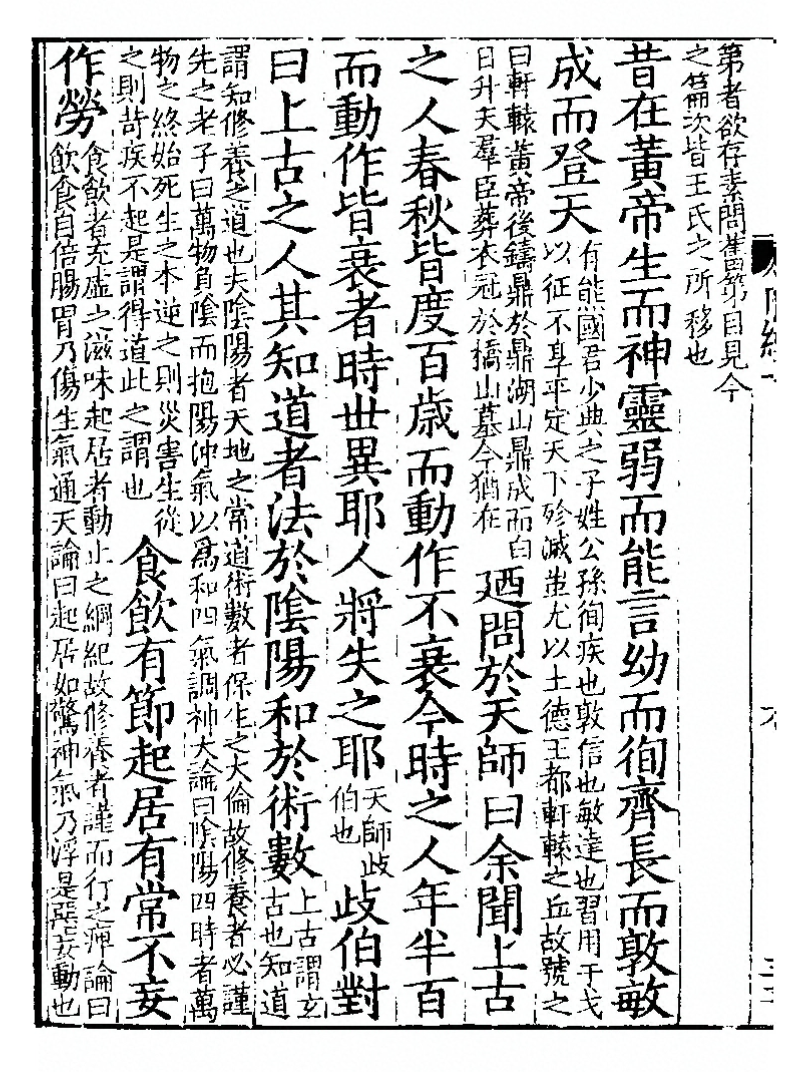 第者欲存素問舊第目見今
之篇次皆王氏之所移也
昔在黃帝生而神靈弱而能言幼而徇齊長而敦敏
成而登天
有熊國君少典之子姓公孫徇疾也敦信也敏達也習用干戈
以征不享平定天下殄滅蚩尤以土德王都軒轅之丘故號之
曰軒轅黃帝後鑄鼎於鼎湖山鼎成而白
日升天羣臣葬衣冠於橋山墓今猶在
廼問於天師曰余聞上古
之人春秋皆度百歲而動作不衰今時之人年半百
而動作皆衰者時世異耶人將失之耶
天師歧
伯也
歧伯對
曰上古之人其知道者法於陰陽和於術數
上古謂玄
古也知道
謂知修養之道也夫陰陽者天地之常道術數者保生之大倫故修養者必謹
先之老子曰萬物負陰而抱陽沖氣以為和四氣調神大論曰陰陽四時者萬
物之終始死生之本逆之則災害生從
之則苛疾不起是謂得道此之謂也
食飲有節起居有常不妄
作勞
食飲者充虛之滋味起居者動止之綱紀故修養者謹而行之痺論曰
飲食自倍腸胃乃傷生氣通天論曰起居如驚神氣乃浮是惡妄動也